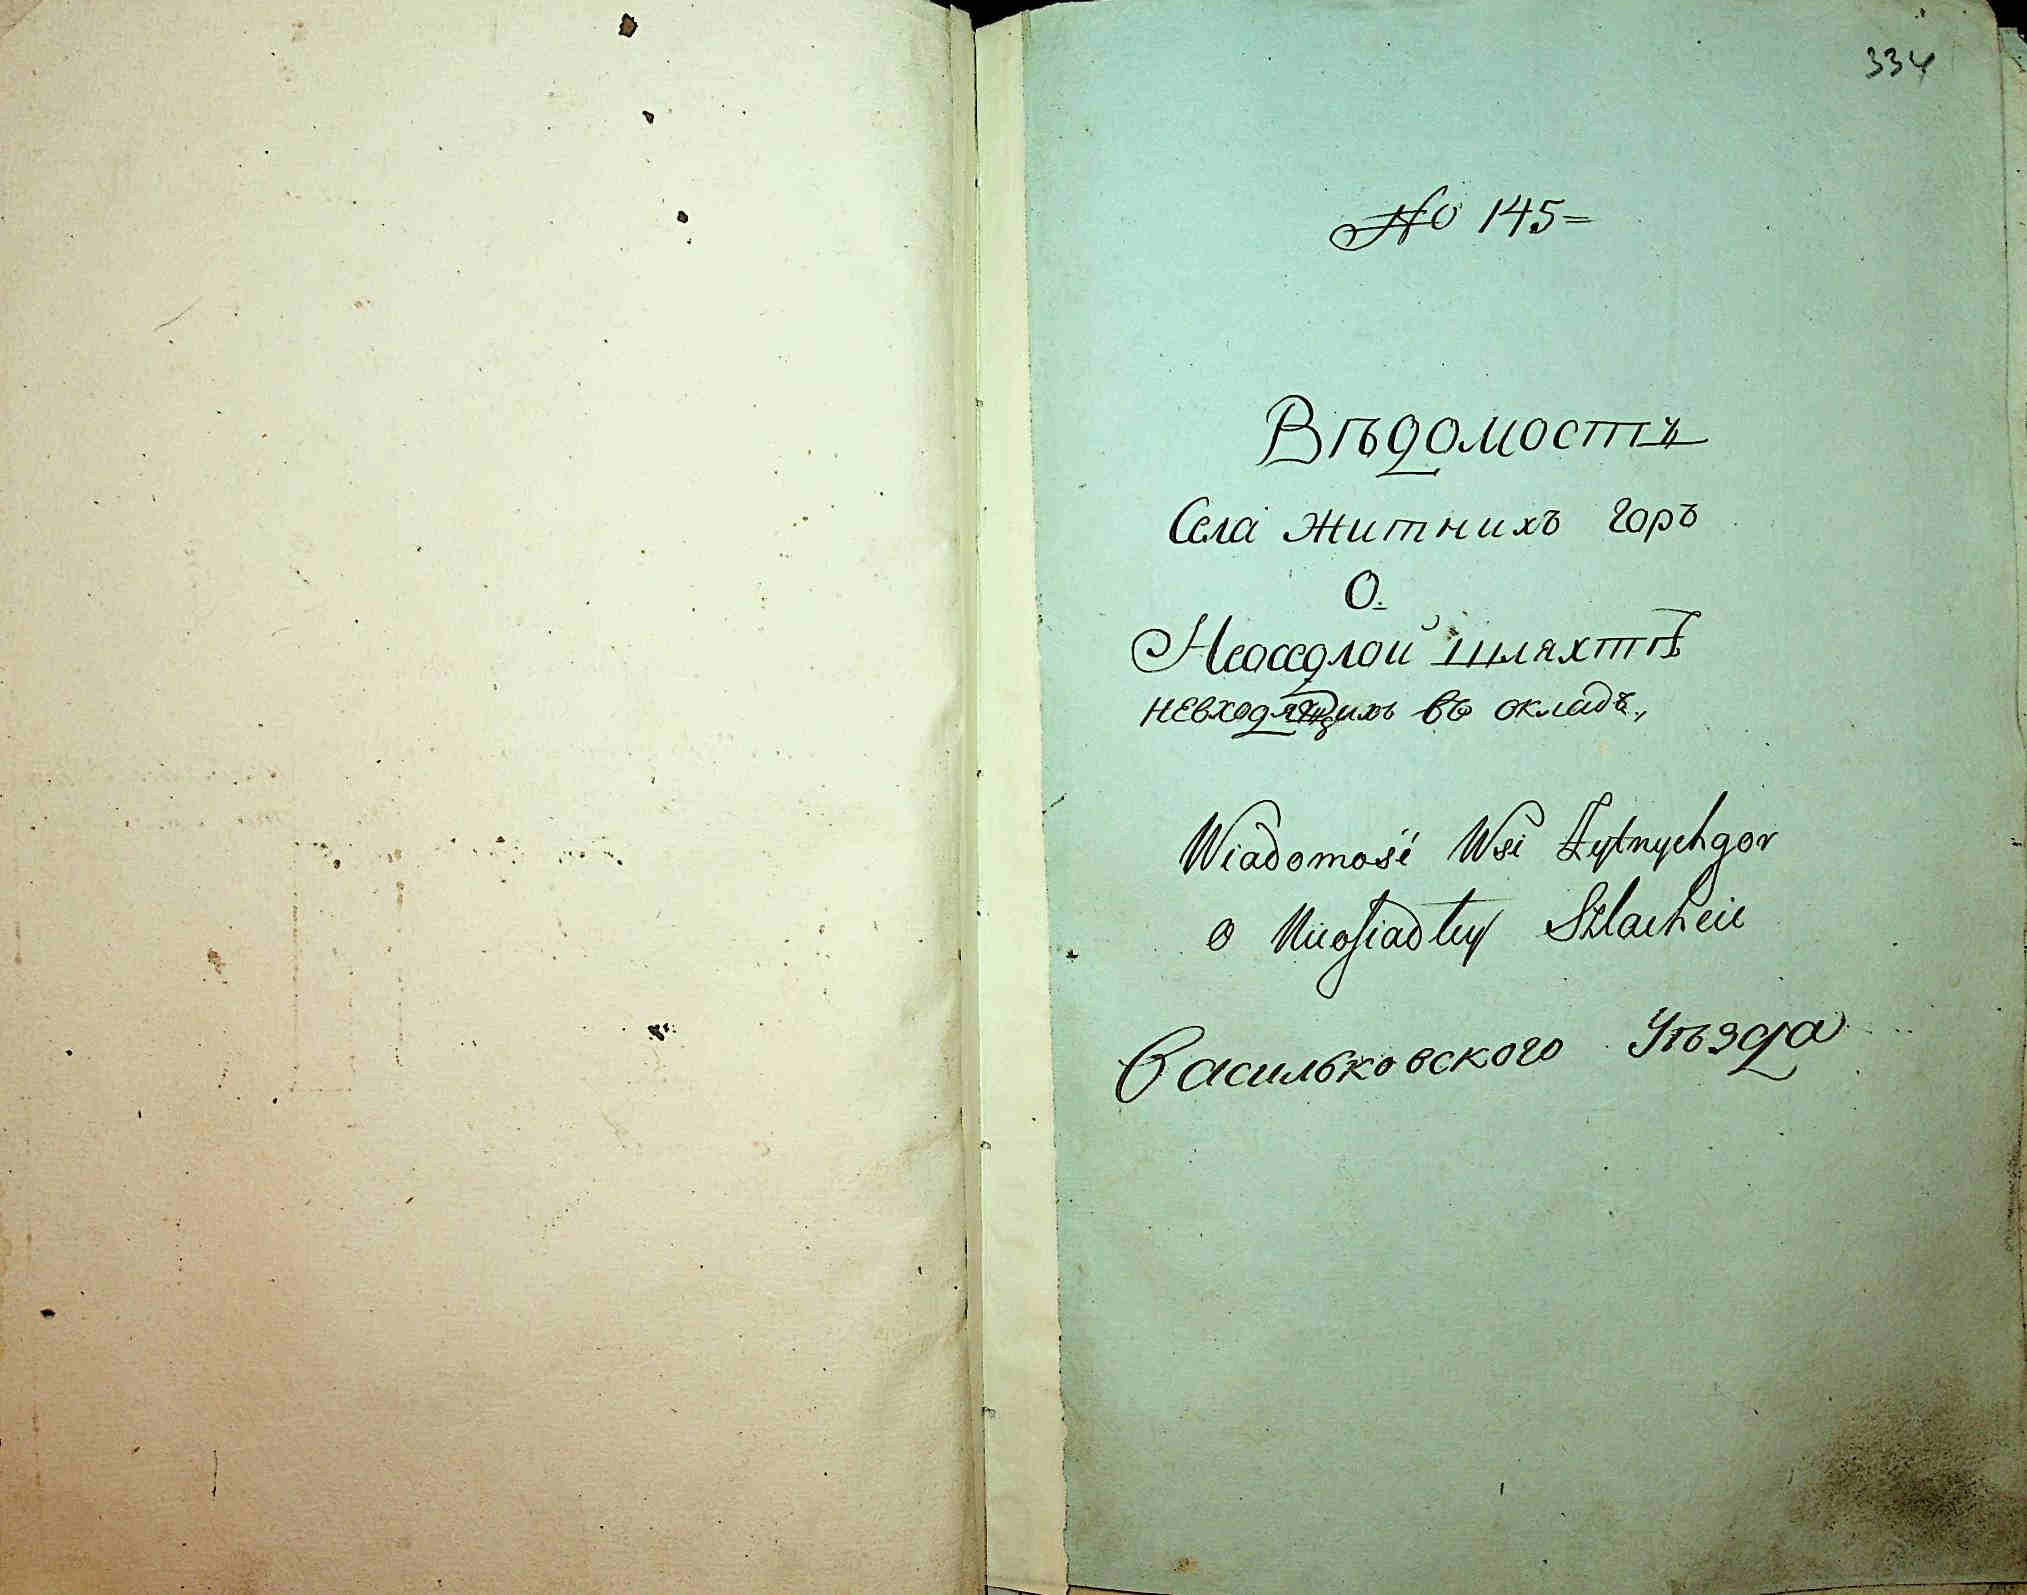 334
No 145=
Вѣдомость
Села Житнихъ Горъ
О.
Неоседлой шляхтѣ
невходящихъ въ окладъ,
Wiadomość Wsi Żytnychgor
o Nieosiadłey Szlachcie
Васильковского Уѣзда